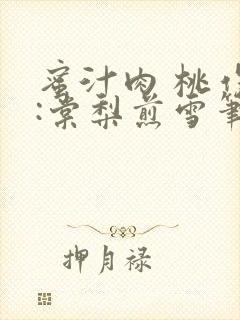 蜜汁肉桃
:棠梨煎雪筆
押月禄